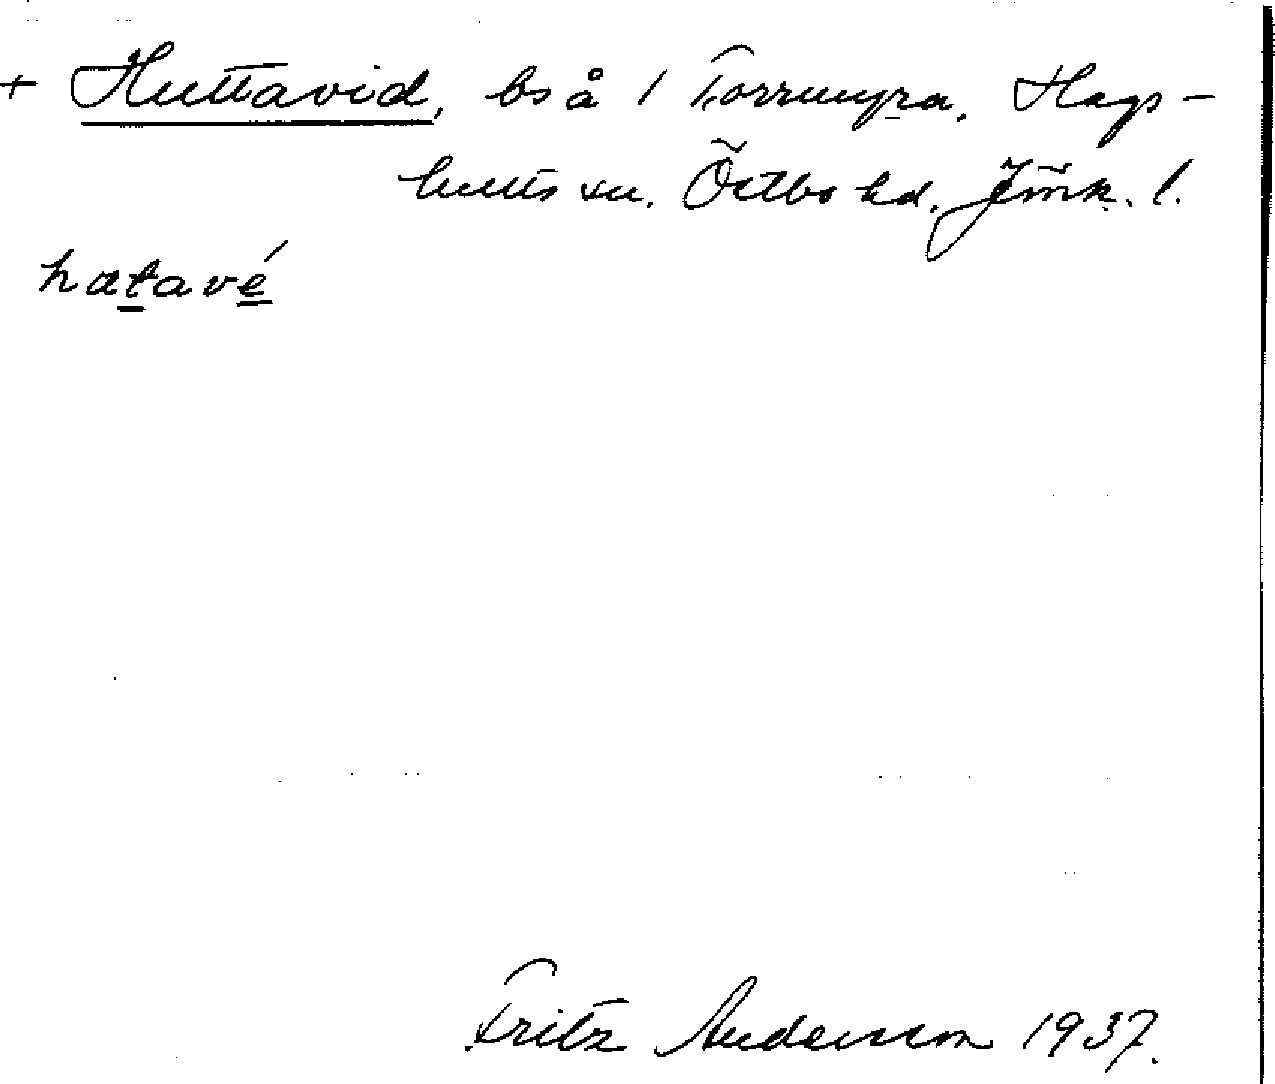 + Huttavid, bs å 1 Torrmyra, Hags-
hults sn. Östbo hd. Jönk. l.
hatavé
Fritz Andersson 1937.